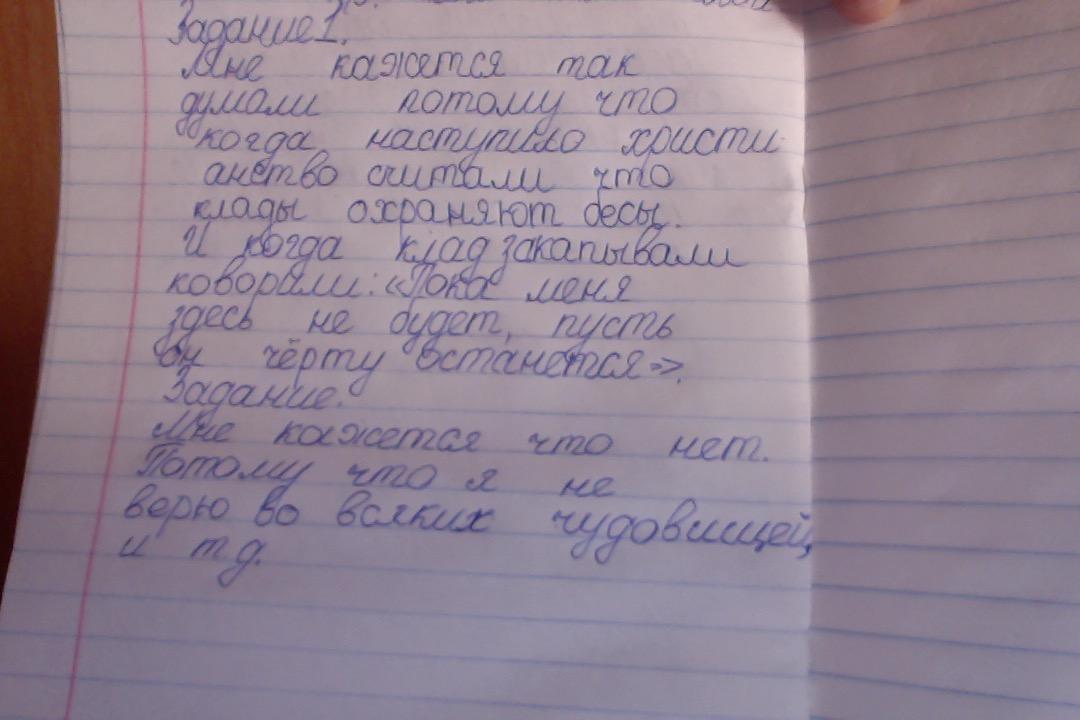 Задание1.
Мне кажется так
думали потому что
когда наступило христи-
анство считали что
клады охраняют бесы.
И когда клад закапывали
коворили: «Пока меня
здесь не будет, пусть
он чёрту останется».
Задание.
Мне кажется что нет.
Потому что я не
верю во всяких чудовищей,
и т д.